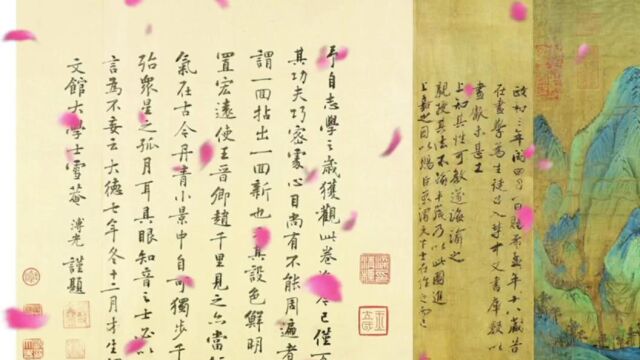 政和三年閏四月一日賜希孟年十八歲昔
在畫學為生徒召入禁中文書庫數以
畫獻未甚工
上知其性可教遂誨諭之
親授其法不踰半歲乃以此圖進
上嘉之因以賜臣京謂天下士在作之而已
予自志學之歲獲觀此卷迄今已僅百
其功夫巧密處心目尚有不能周遍者
謂一回拈出一回新也又其設色鮮明
置宏遠使王晉卿趙千里見之亦當短
氣在古今丹青小景中自可獨步千
殆眾星之孤月耳具眼知音之士必以
言為不妄云大德七年冬十二月才生魄
文館大學士雪菴溥光謹題